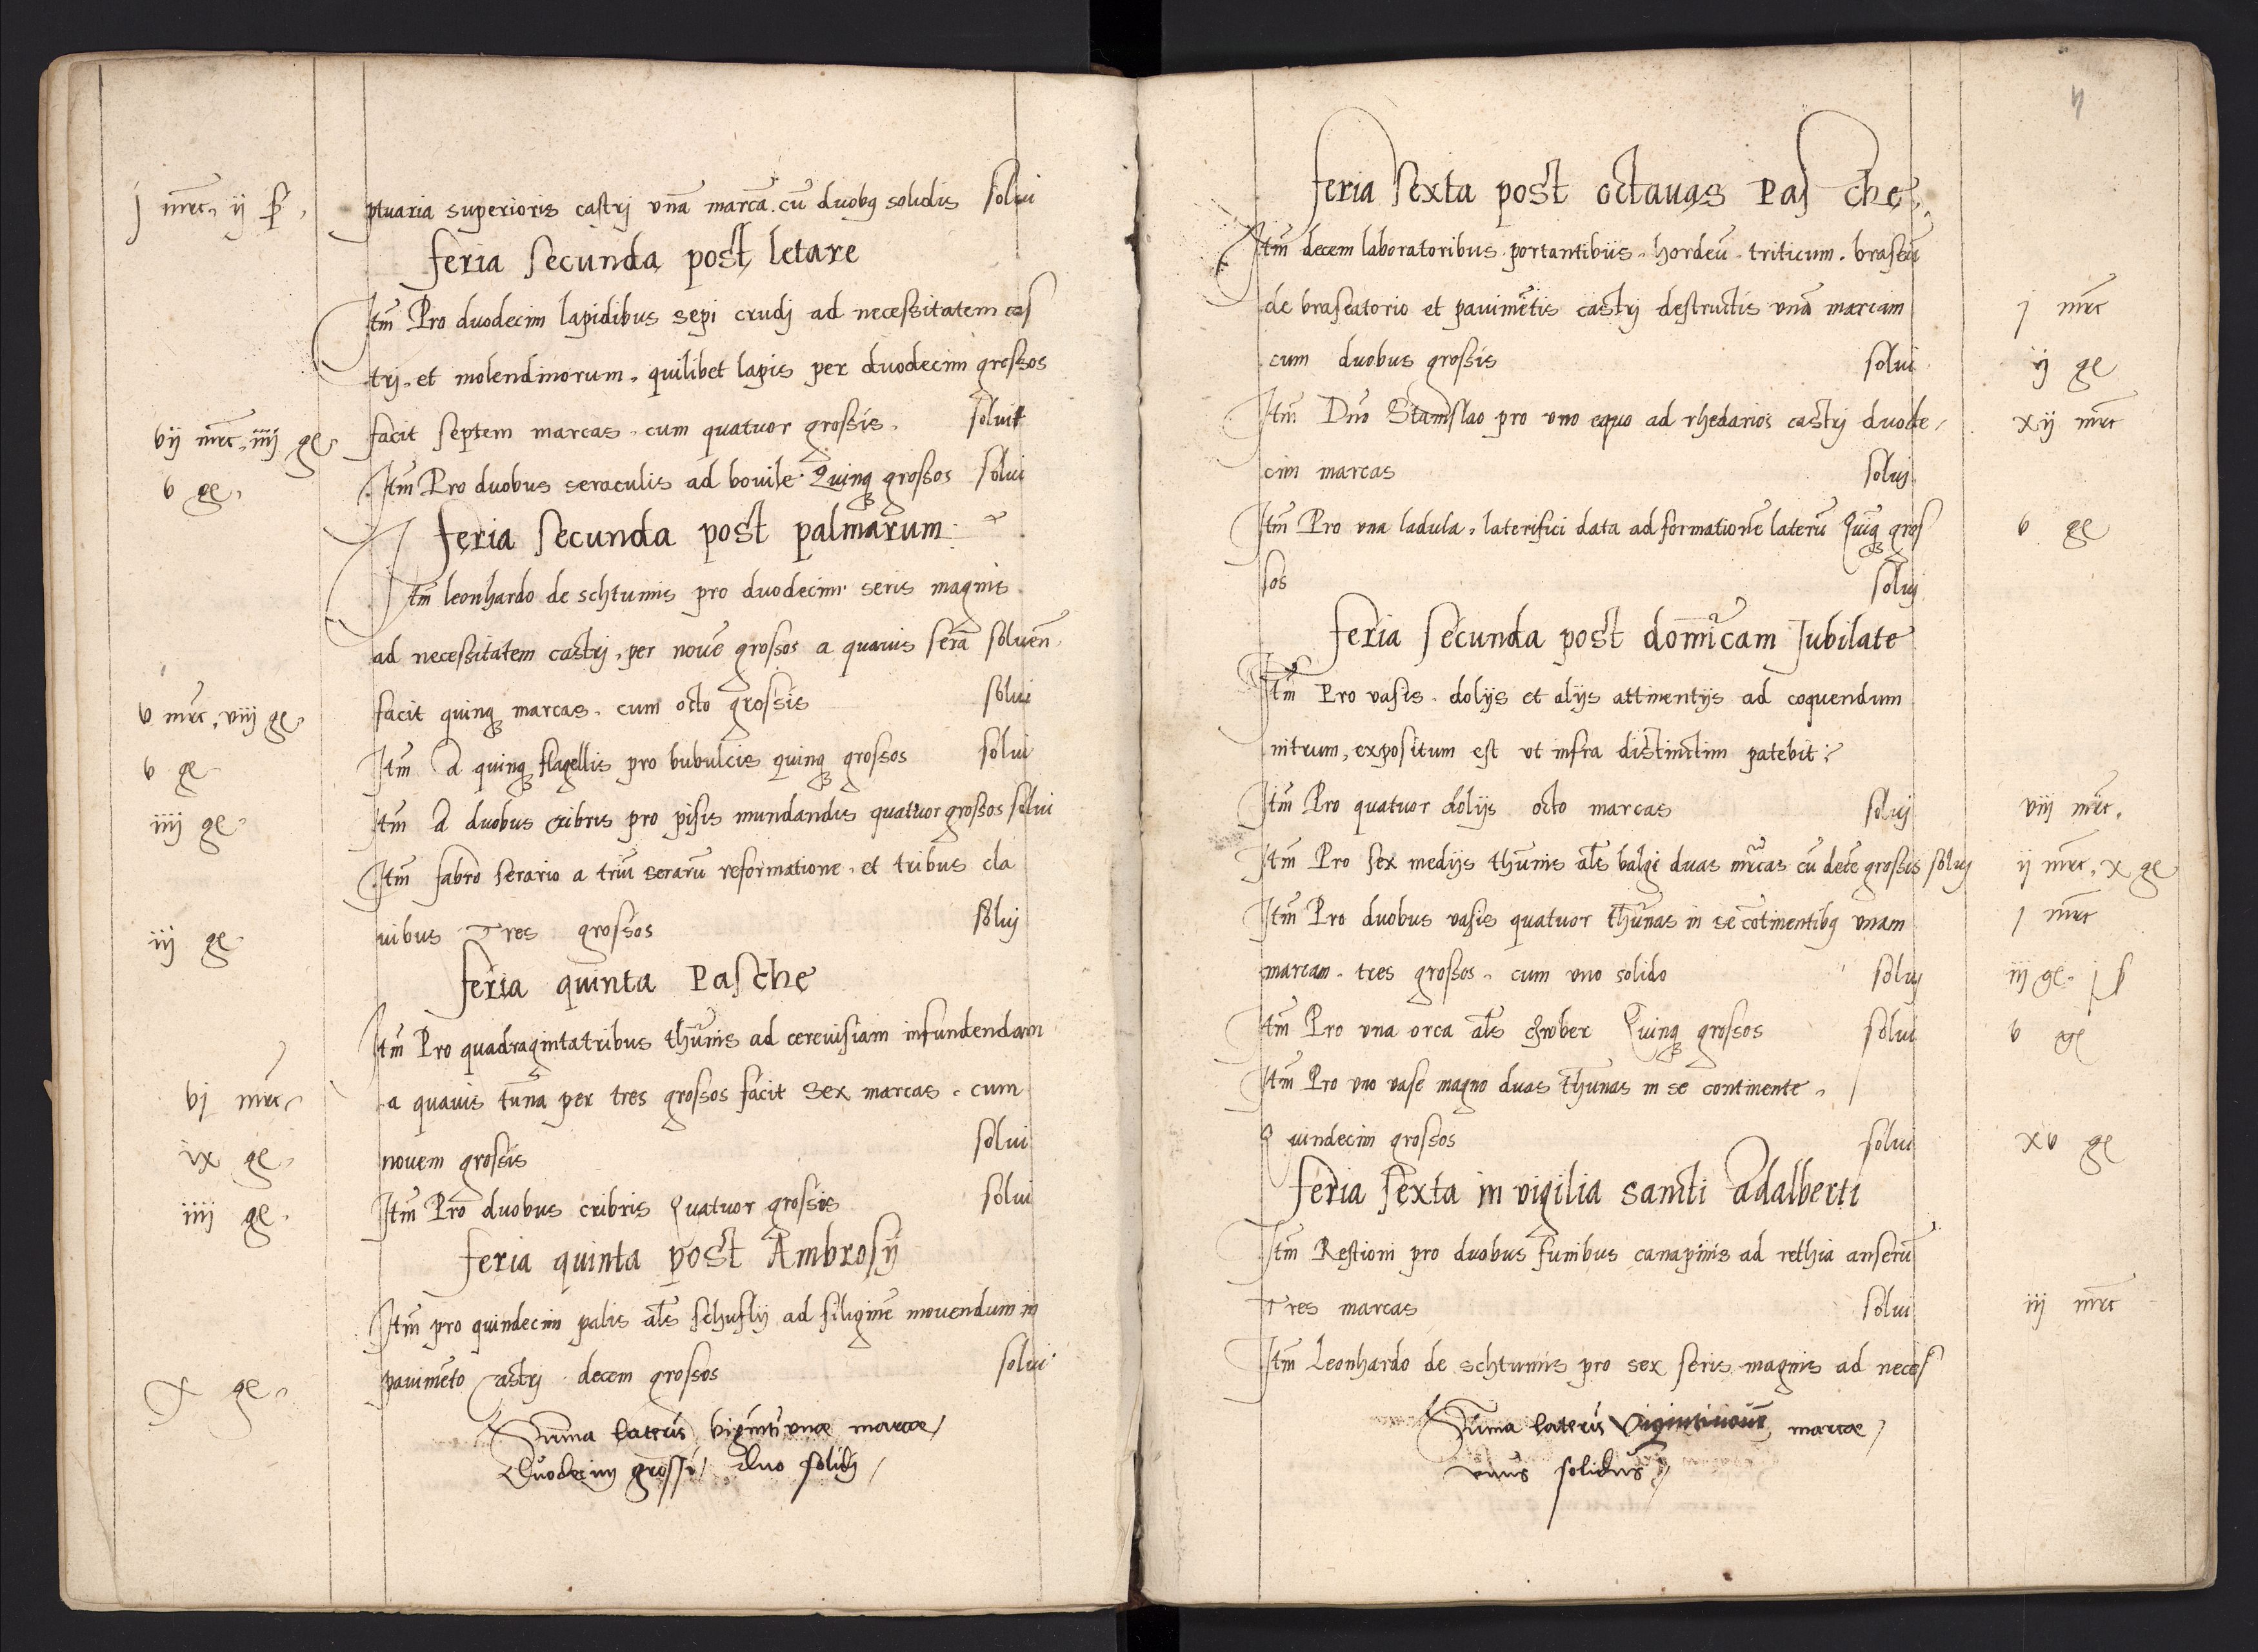 j mrc. ij ꝭ. ptuaria superioris castrj vnã marcã. cũ duobꝫ solidis solui
feria secunda post letare
Itm̃ Pro duodecim lapidibus sepi crudj ad necessitatem cas
trj. et molendinorum. quilibet lapis per duodecim grossos
vij mrc. iiij ge facit septem marcas. cum quatuor grossis. soluit
v ge. Itm̃ Pro duobus seraculis ad bouile. Quinqꝫ grossos solui
feria secunda post palmarum
Itm̃ leonhardo de schtumis pro duodecim seris magnis
ad necessitatem castrj. per nouẽ grossos a quauis serã soluen̄
v mrc. viij ge. facit quinqꝫ marcas. cum octo grossis solui
v ge Itm̃ A quinqꝫ flagellis pro bubulcis quinqꝫ grossos solui
iiij ge Itm̃ A duobus cribris pro pisis mundandis quatuor grossos solui
Itm̃ fabro serario a triũ serarũ reformatione. et tribus cla
iij ge uibus Tres grossos soluj
feria quinta Pasche
Itm̃ Pro quadragintatribus thũnis ad cereuisiam infundendam
vj mrc a quauis tũna per tres grossos facit sex marcas. cum
ix ge nouem grossis solui
iiij ge. Itm̃ Pro duobus cribris Quatuor grossis solui
feria quinta post Ambrosij
Itm̃ pro quindecim palis als̃ schuflij ad siliginẽ mouendum in
x ge. pauimẽto castrj. decem grossos solui
Sũma lateris vigintiune marcae/
Duodecim grossi/ duo solidj/
4
feria sexta post octauas Pasche
Itm̃ decem laboratoribus. portantibus. hordeũ. triticum. braseũ
de braseatorio et pauimẽtis castrj destructis vnã marcam j mrc
cum duobus grossis solui ij ge
Itm̃ Dn̄o Stanislao pro vno equo ad rhedarios castrj duode- xij mrc
cim marcas soluj
Itm̃ Pro vna ladula. laterifici data ad formationẽ laterũ Quinqꝫ gros v ge
sos soluj
feria secunda post domĩcam Jubilate
Itm̃ Pro vasis. dolijs et alijs attinentijs ad coquendum
nitrum, expositum est vt infra distinctim patebit:
Itm̃ Pro quatuor dolijs octo marcas soluj viij mrc.
Itm̃ Pro sex medijs thũnis als̃ balgi duas mr̃cas cũ decẽ grossis soluj ij mrc. x ge
Itm̃ Pro duobus vasis quatuor thũnas in se cõtinentibꝫ vnam j mrc
marcam. tres grossos. cum vno solido soluj iij ge. j ꝭ
Itm̃ Pro vna orca als̃ schober Quinqꝫ grossos solui v ge
Itm̃ Pro vno vase magno duas thũnas in se continente.
Quindecim grossos solui xv ge
feria sexta in vigilia sancti Adalberti
Itm̃ Restioni pro duobus funibus canapinis ad rethia anserũ
Tres marcas solui iij mrc
Itm̃ Leonhardo de schtumis pro sex seris magnis ad neces
Sũma lateris Vigintinouẽ marcae/
vnus solidus/